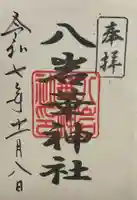 奉拝
八岩華神社
令和七年十二月八日